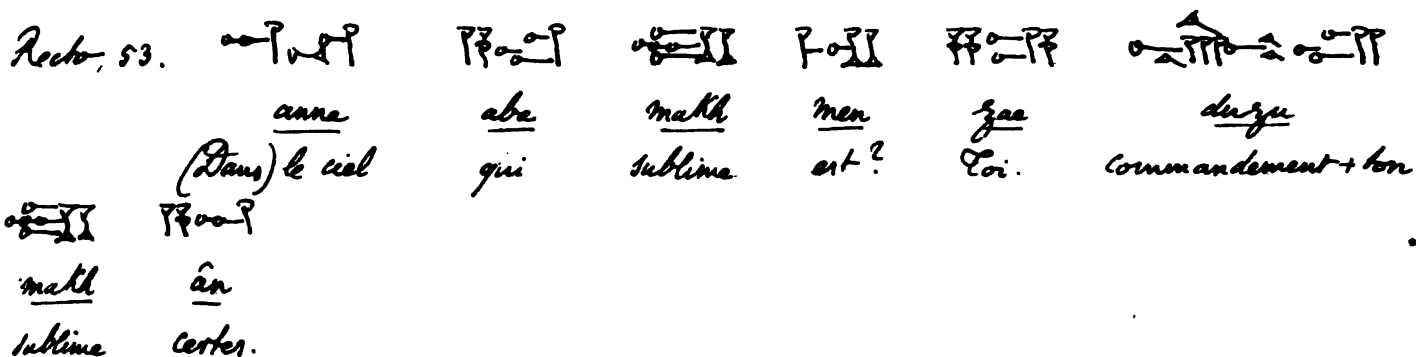 Recto, 53.
anna aba makh men zae duzu
(Dans) le ciel qui sublime est? Toi. commandement + ton
makh ân
sublime certes.